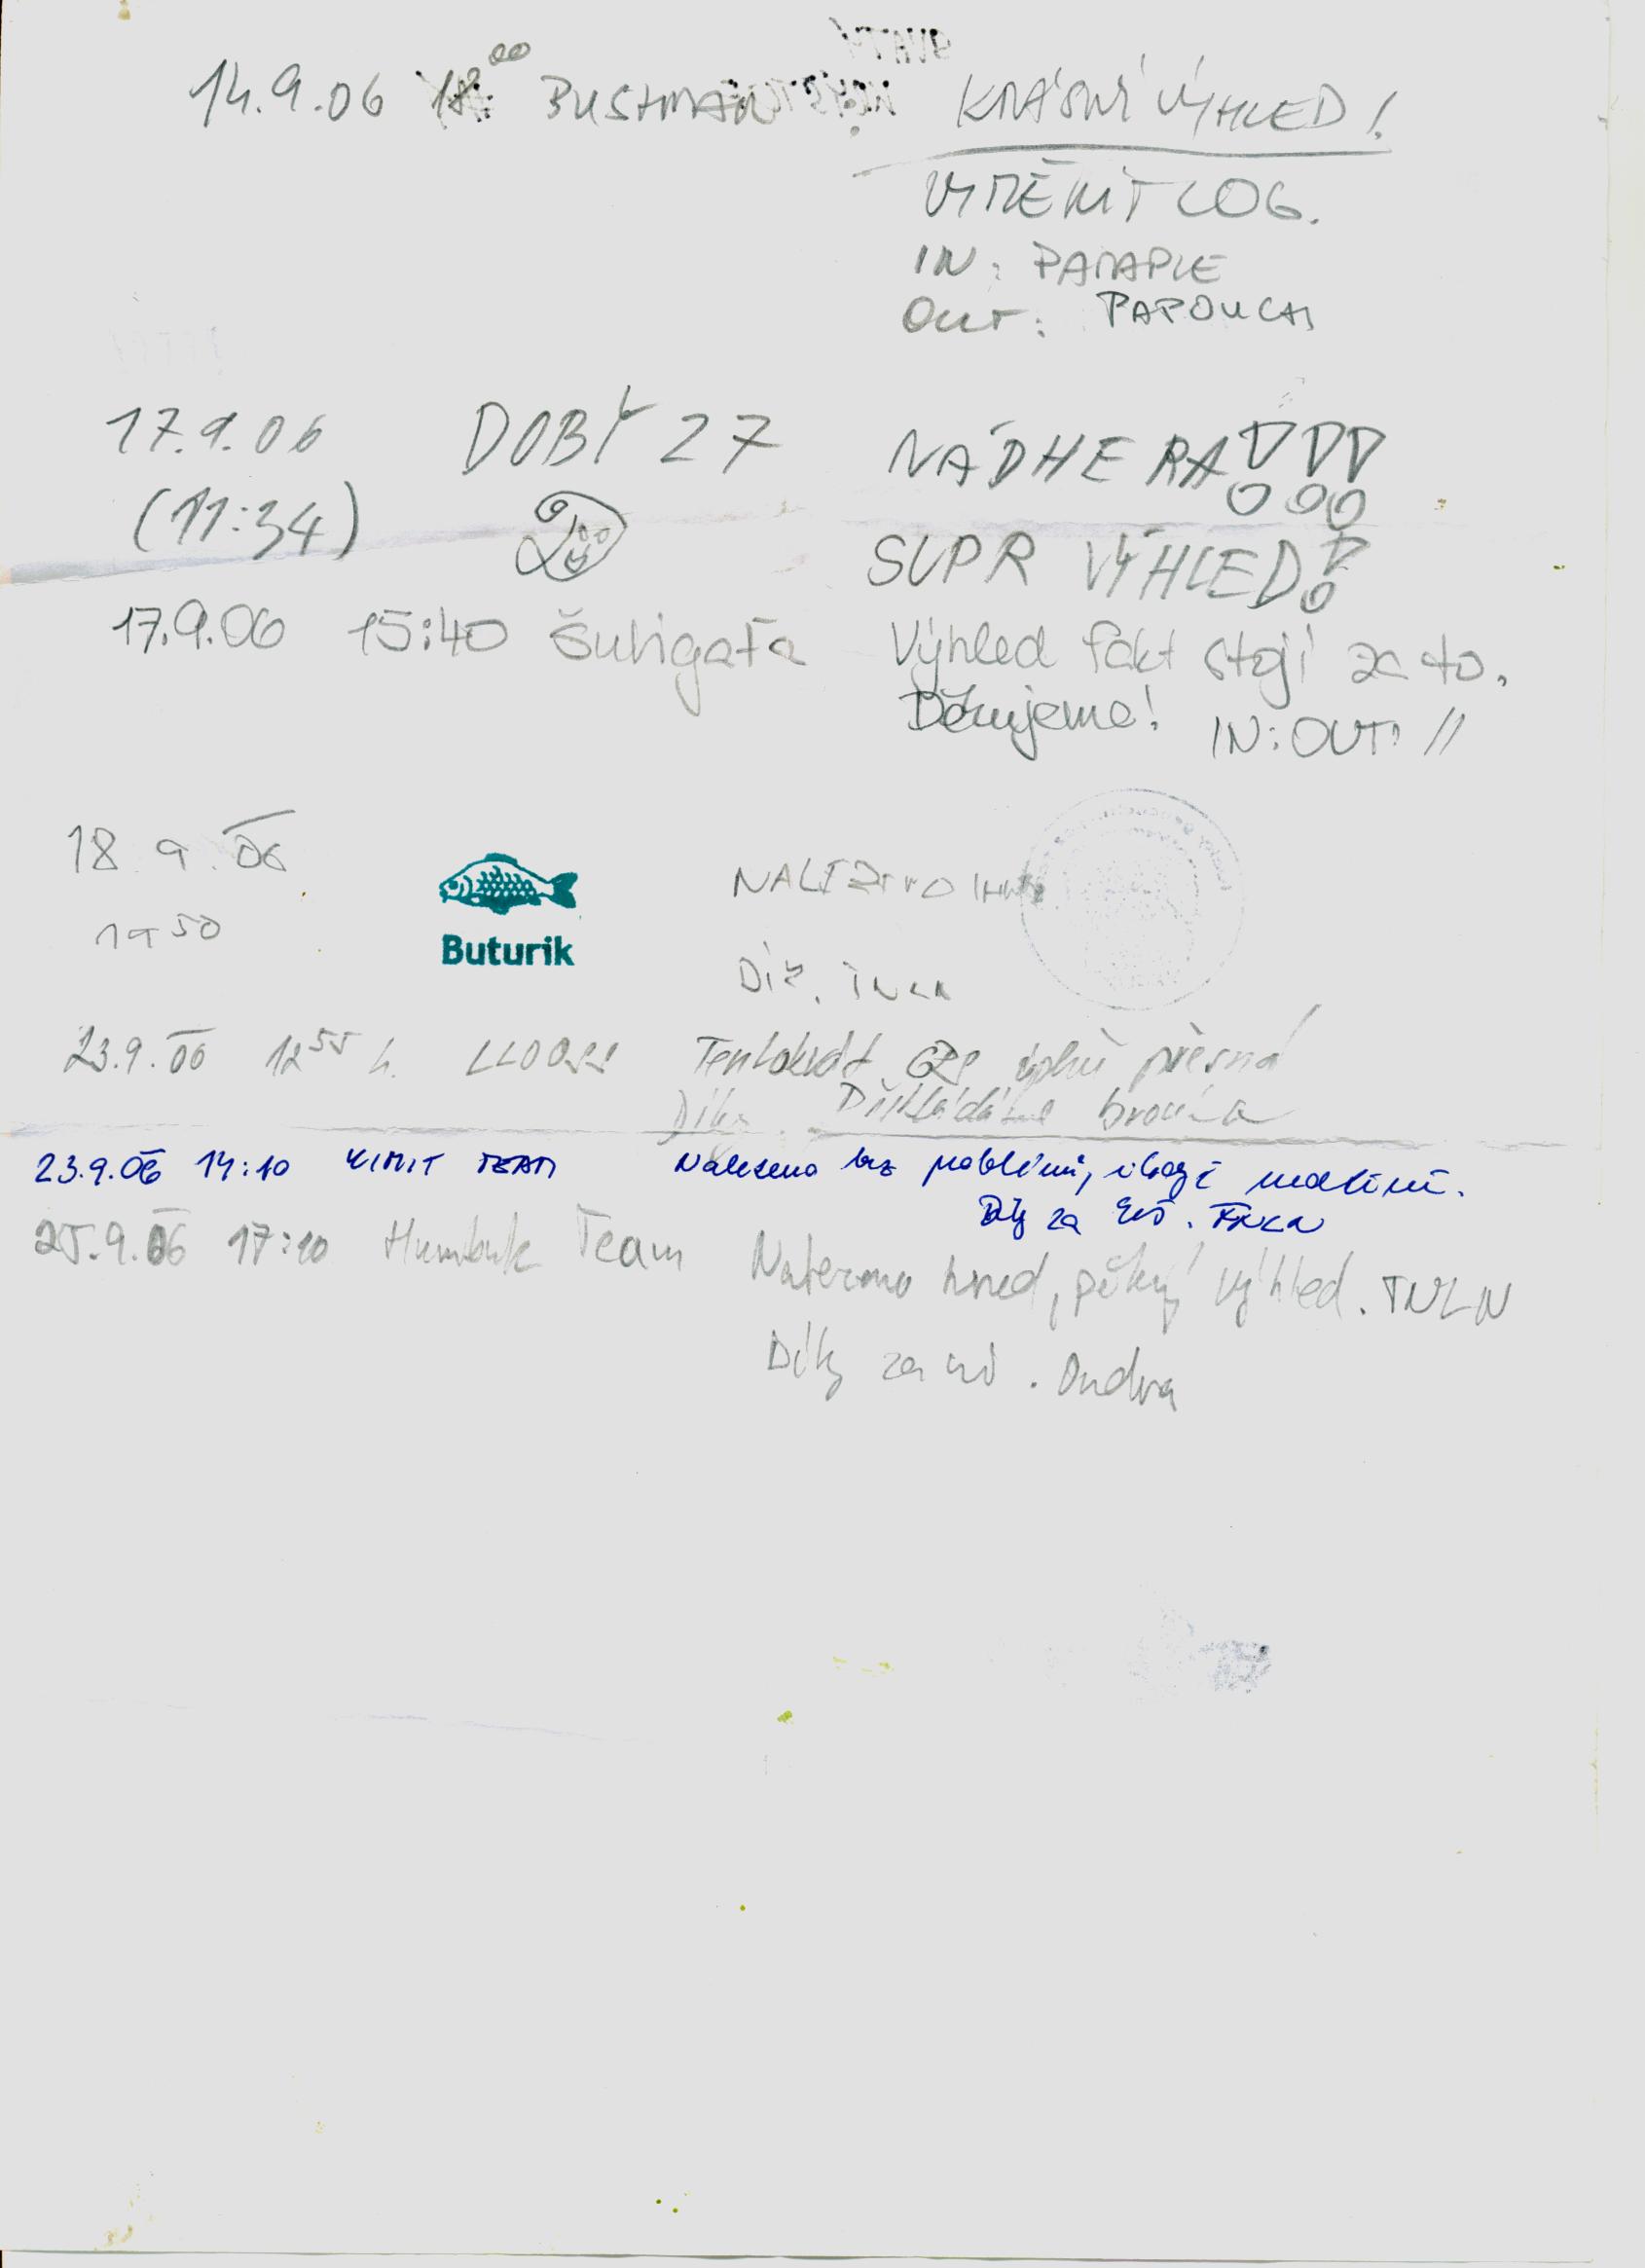 14.9.06 18:00 BUSHMAN KRÁSNÝ VÝHLED!
VYMĚNIT LOG.
IN: PARAPLE
OUT: PAPOUCH
17.9.06 DOBÝ 27 NÁDHERA!!!
(11:34) SUPR VÝHLED!
17.9.06 15:40 Šuligaťa Výhled fakt stojí za to.
Děkujeme! IN: OUT: //
18.9.06
19 50 Buturik
Dík, TNLN
23.9.06 12 55 h. Tentokrát GPS úplně přesná
Díky.
23.9.06 14:10 TEAM Nalezeno bez problémů,
Díky za keš. TNLN
25.9.06 17:10 Humbuk Team Nalezeno hned, pěkný výhled. TNLN
Díky za ni. Ondra